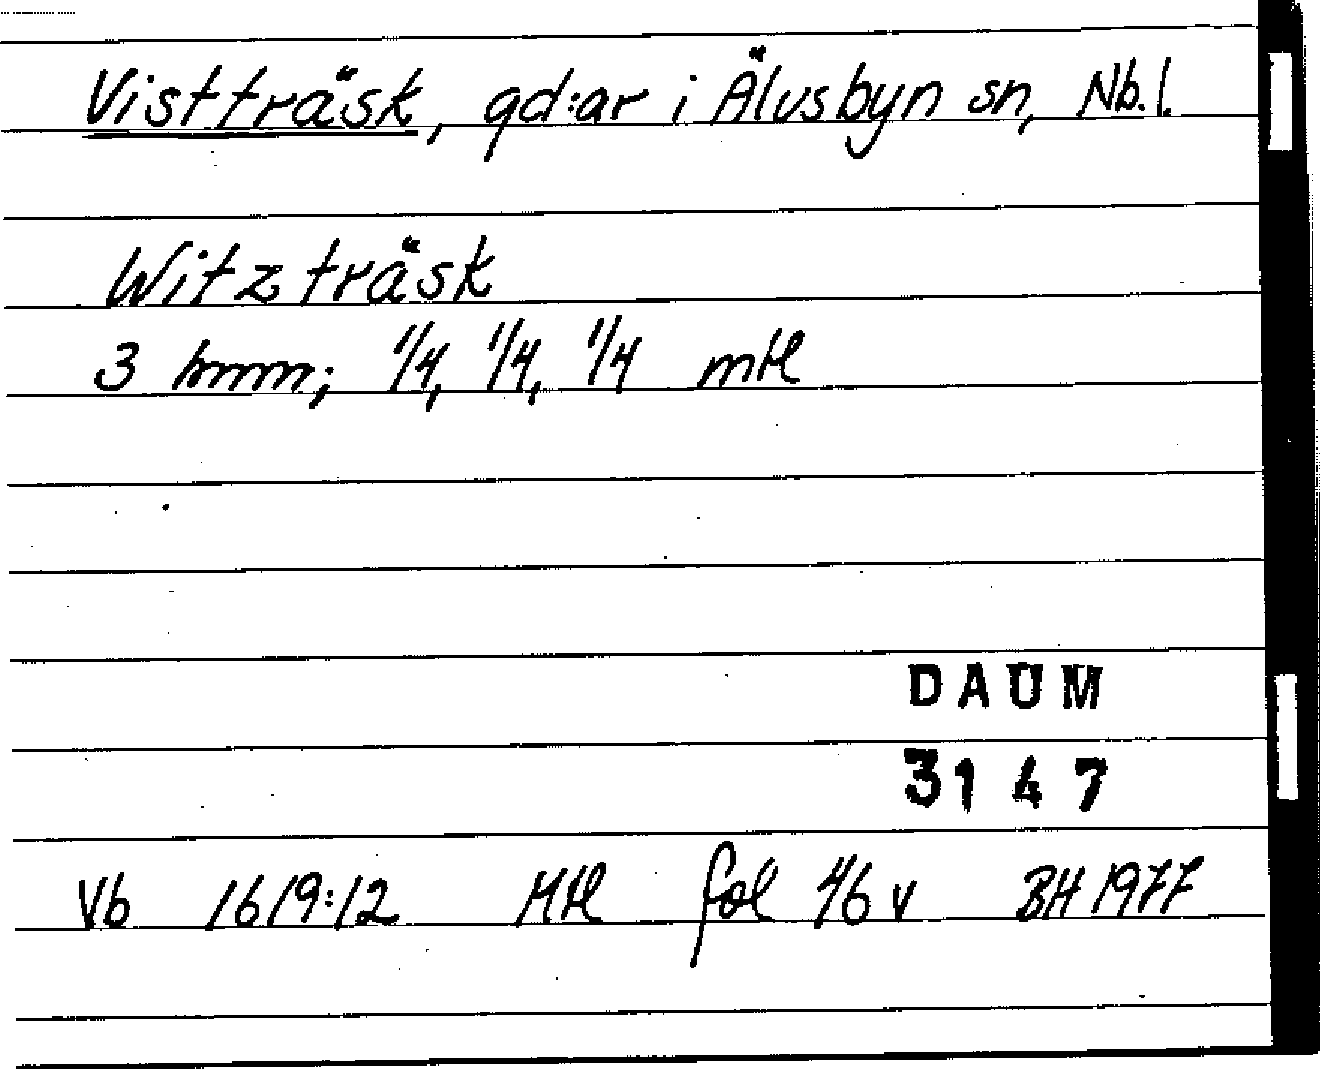 Vistträsk, gd:ar i Älvsbyn sn, Nb.l.
Witzträsk
3 hmm; 1/4, 1/4, 1/4 mtl
DAUM
3147
Vb 1619:12 Mtl fol 46 v BH 1977